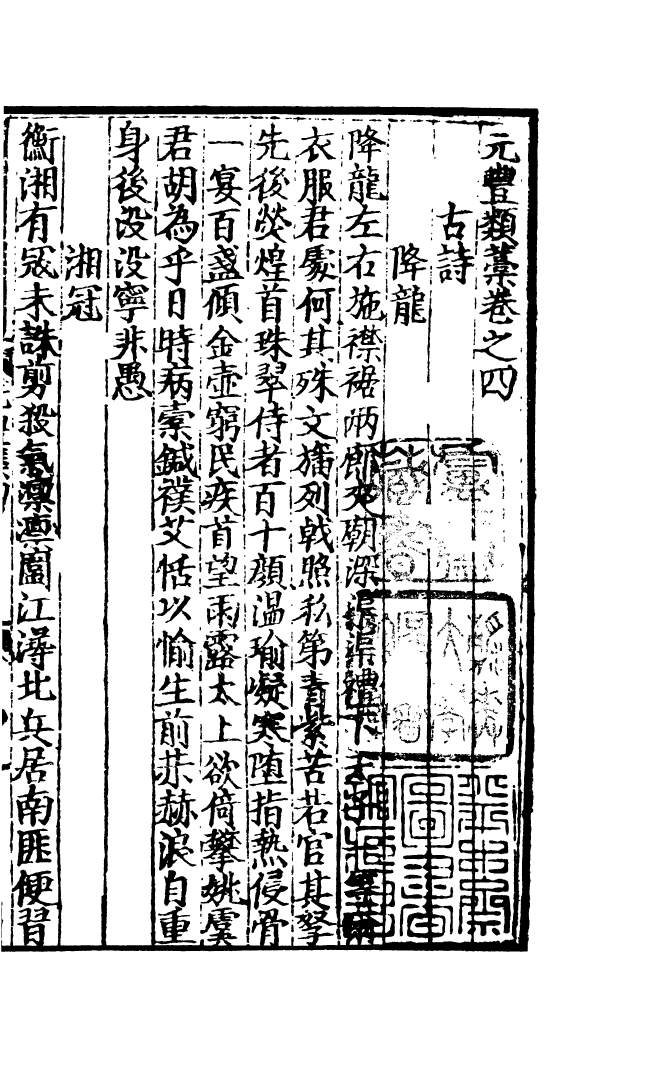 元豐類藁卷之四
古詩
降龍
降龍左右施襟裾兩郎死朝深渠渠禮下天子
衣服君處何其殊文𤲞列戟照私第青紫苦若官其孥
先後熒煌首珠翠侍者百十顔溫瑜凝寒墮指熱侵骨
一宴百盞傾金壺窮民疾首望雨露太上欲倚攀姚虞
君胡為乎日時病橐鍼襆艾恬以愉生前赫赫浪自重
身後没没寧非愚
湘冦
衡湘有冦未誅剪殺氣凜凜圍江潯北兵居南匪便習